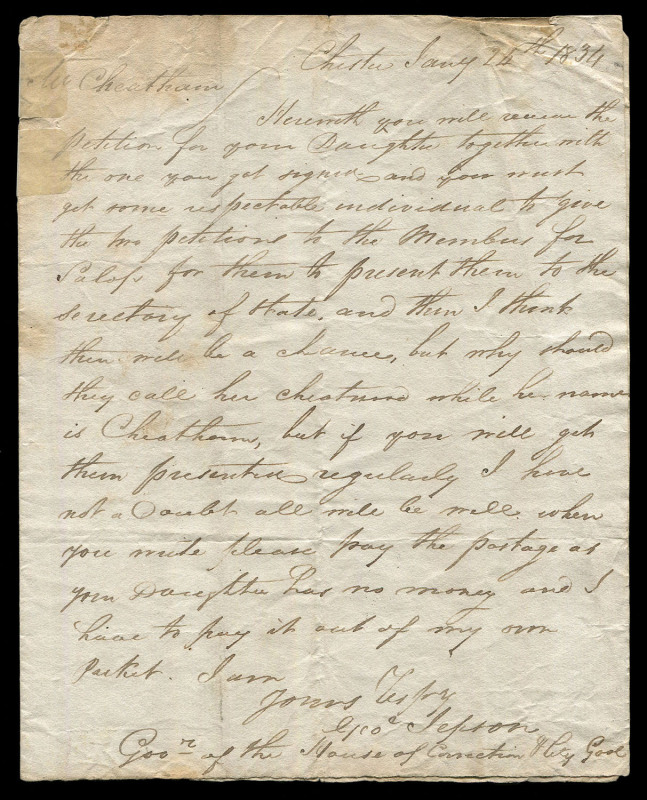 Chester Jany 24th 1834
Mr Cheatham
Herewith you will receive the
Petition for your Daughter together with
the one you got signed and you must
get some respectable individual to give
the two petitions to the Members for
Salop for them to present them to the
secretary of state. and then I think
there will be a chance, but why should
they call her cheatum while her name
is Cheatham, but if you will get
them presented regularly I have
not a Doubt all will be well. when
you write please pay the postage as
your Daughter has no money and I
have to pay it out of my own
Pocket. I am
Yours Respy
Geo Jepson
Govr of the House of Correction City Gaol